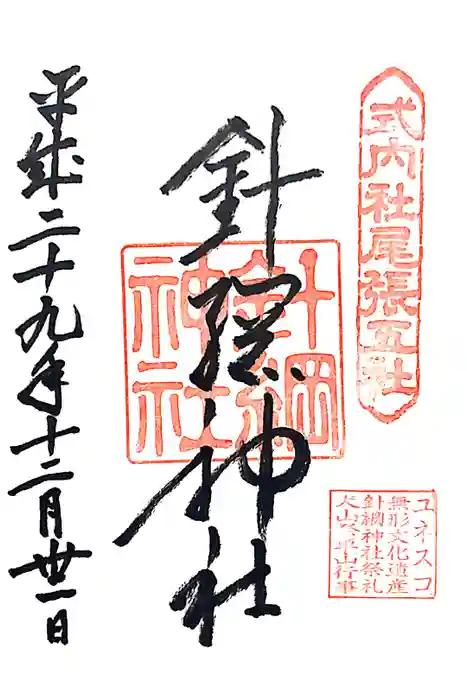 式内社尾張五社
ユネスコ
無形文化遺産
針綱神社祭礼
犬山祭車山行事
針綱神社
針綱神社
平成二十九年十二月卅一日